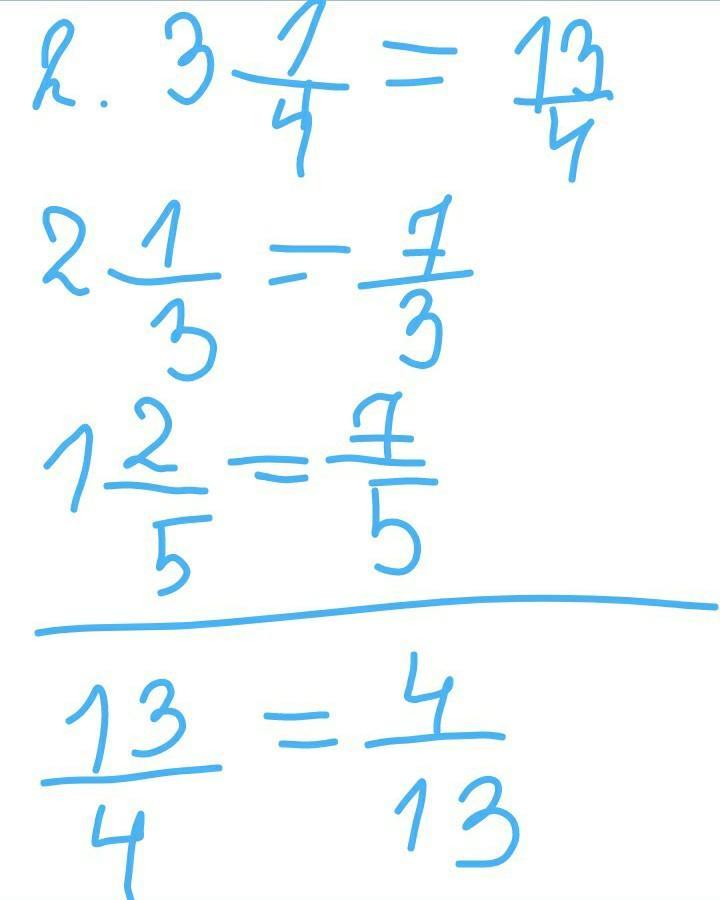 2. 3 1/4 = 13/4
2 1/3 = 7/3
1 2/5 = 7/5
13/4 = 4/13